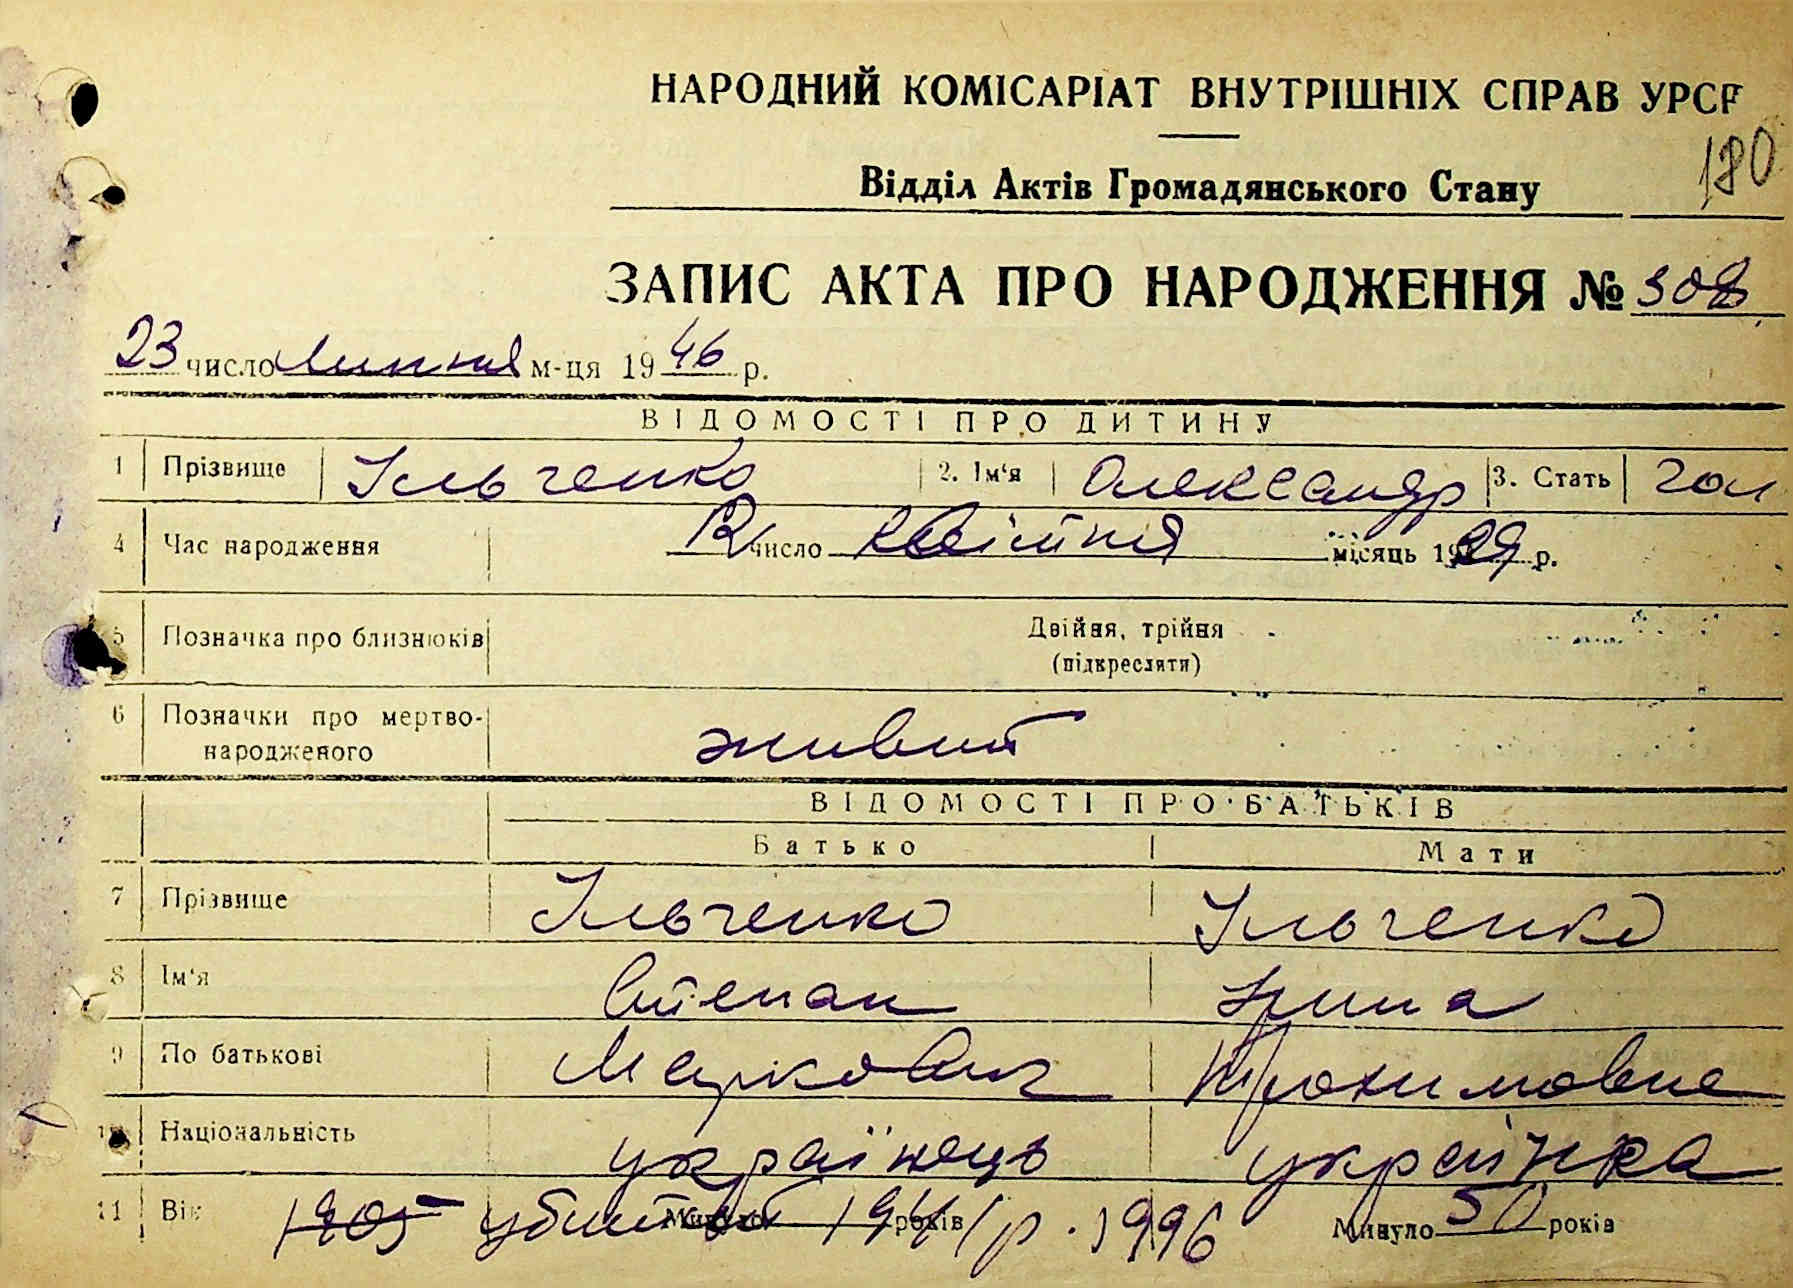 НАРОДНИЙ КОМІСАРІАТ ВНУТРІШНІХ СПРАВ УРСР
180
Відділ Актів Громадянського Стану
ЗАПИС АКТА ПРО НАРОДЖЕННЯ № 308
23 число липня м-ця 1946 р.
ВІДОМОСТІ ПРО ДИТИНУ
1 Прізвище Ільченко 2. Ім'я Олександр 3. Стать чол
4 Час народження 12 число квітня місяць 1929 р.
5 Позначка про близнюків Двійня, трійня
(підкреслити)
6 Позначки про мертво-
народженого живий
ВІДОМОСТІ ПРО БАТЬКІВ
Батько Мати
7 Прізвище Ільченко Ільченко
8 Ім'я Степан Ірина
9 По батькові Маркович Трохимовна
10 Національність українець українка
11 Вік 1905 убитий Минуло 1941 р. років 1996 Минуло 50 років